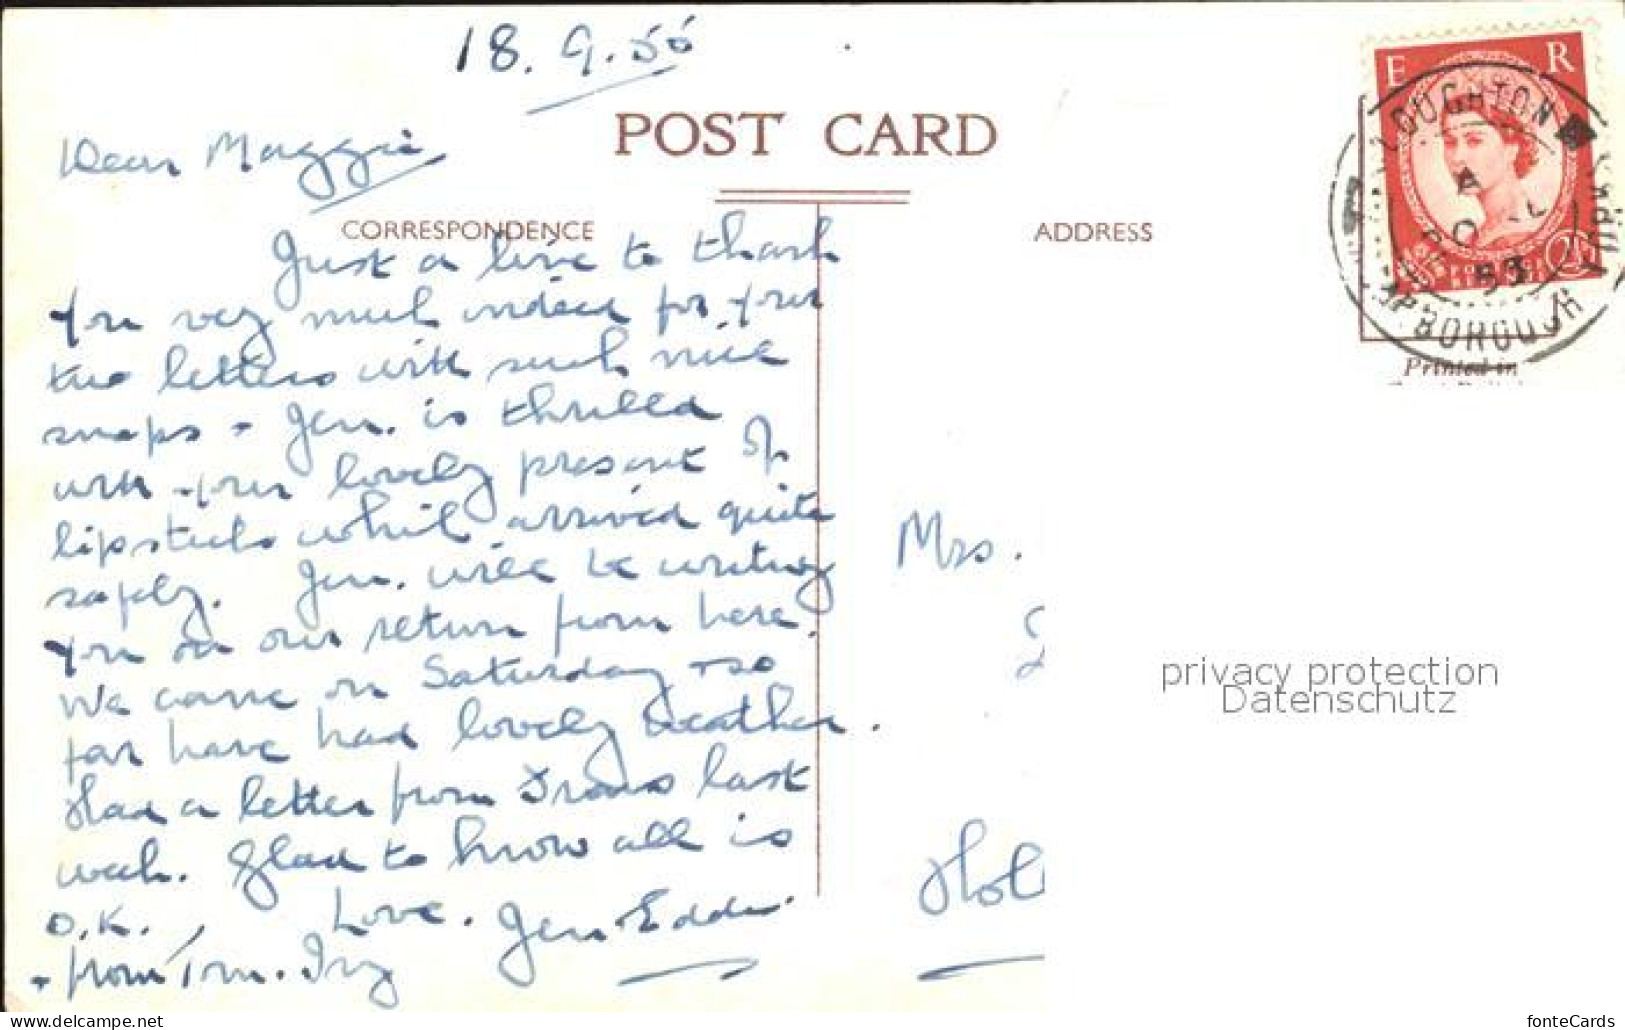 18.9.55
Dear Maggie
POST CARD
CORRESPONDENCE
ADDRESS
Just a line to thank
you very much indeed for your
two letters with such nice
snaps + Jen. is thrilled
with your lovely present of
lipsticks which arrived quite
safely. Jen. will be writing
you on our return from here.
We came on Saturday + so
far have had lovely weather.
Had a letter from last
week. Glad to know all is
O.K. Love. Jen + Eddie.
+ from
Mrs.
Hol
E R
LOUGHTON
53
Printed in
privacy protection
Datenschutz
https://www.delcampe.net
fonteCards